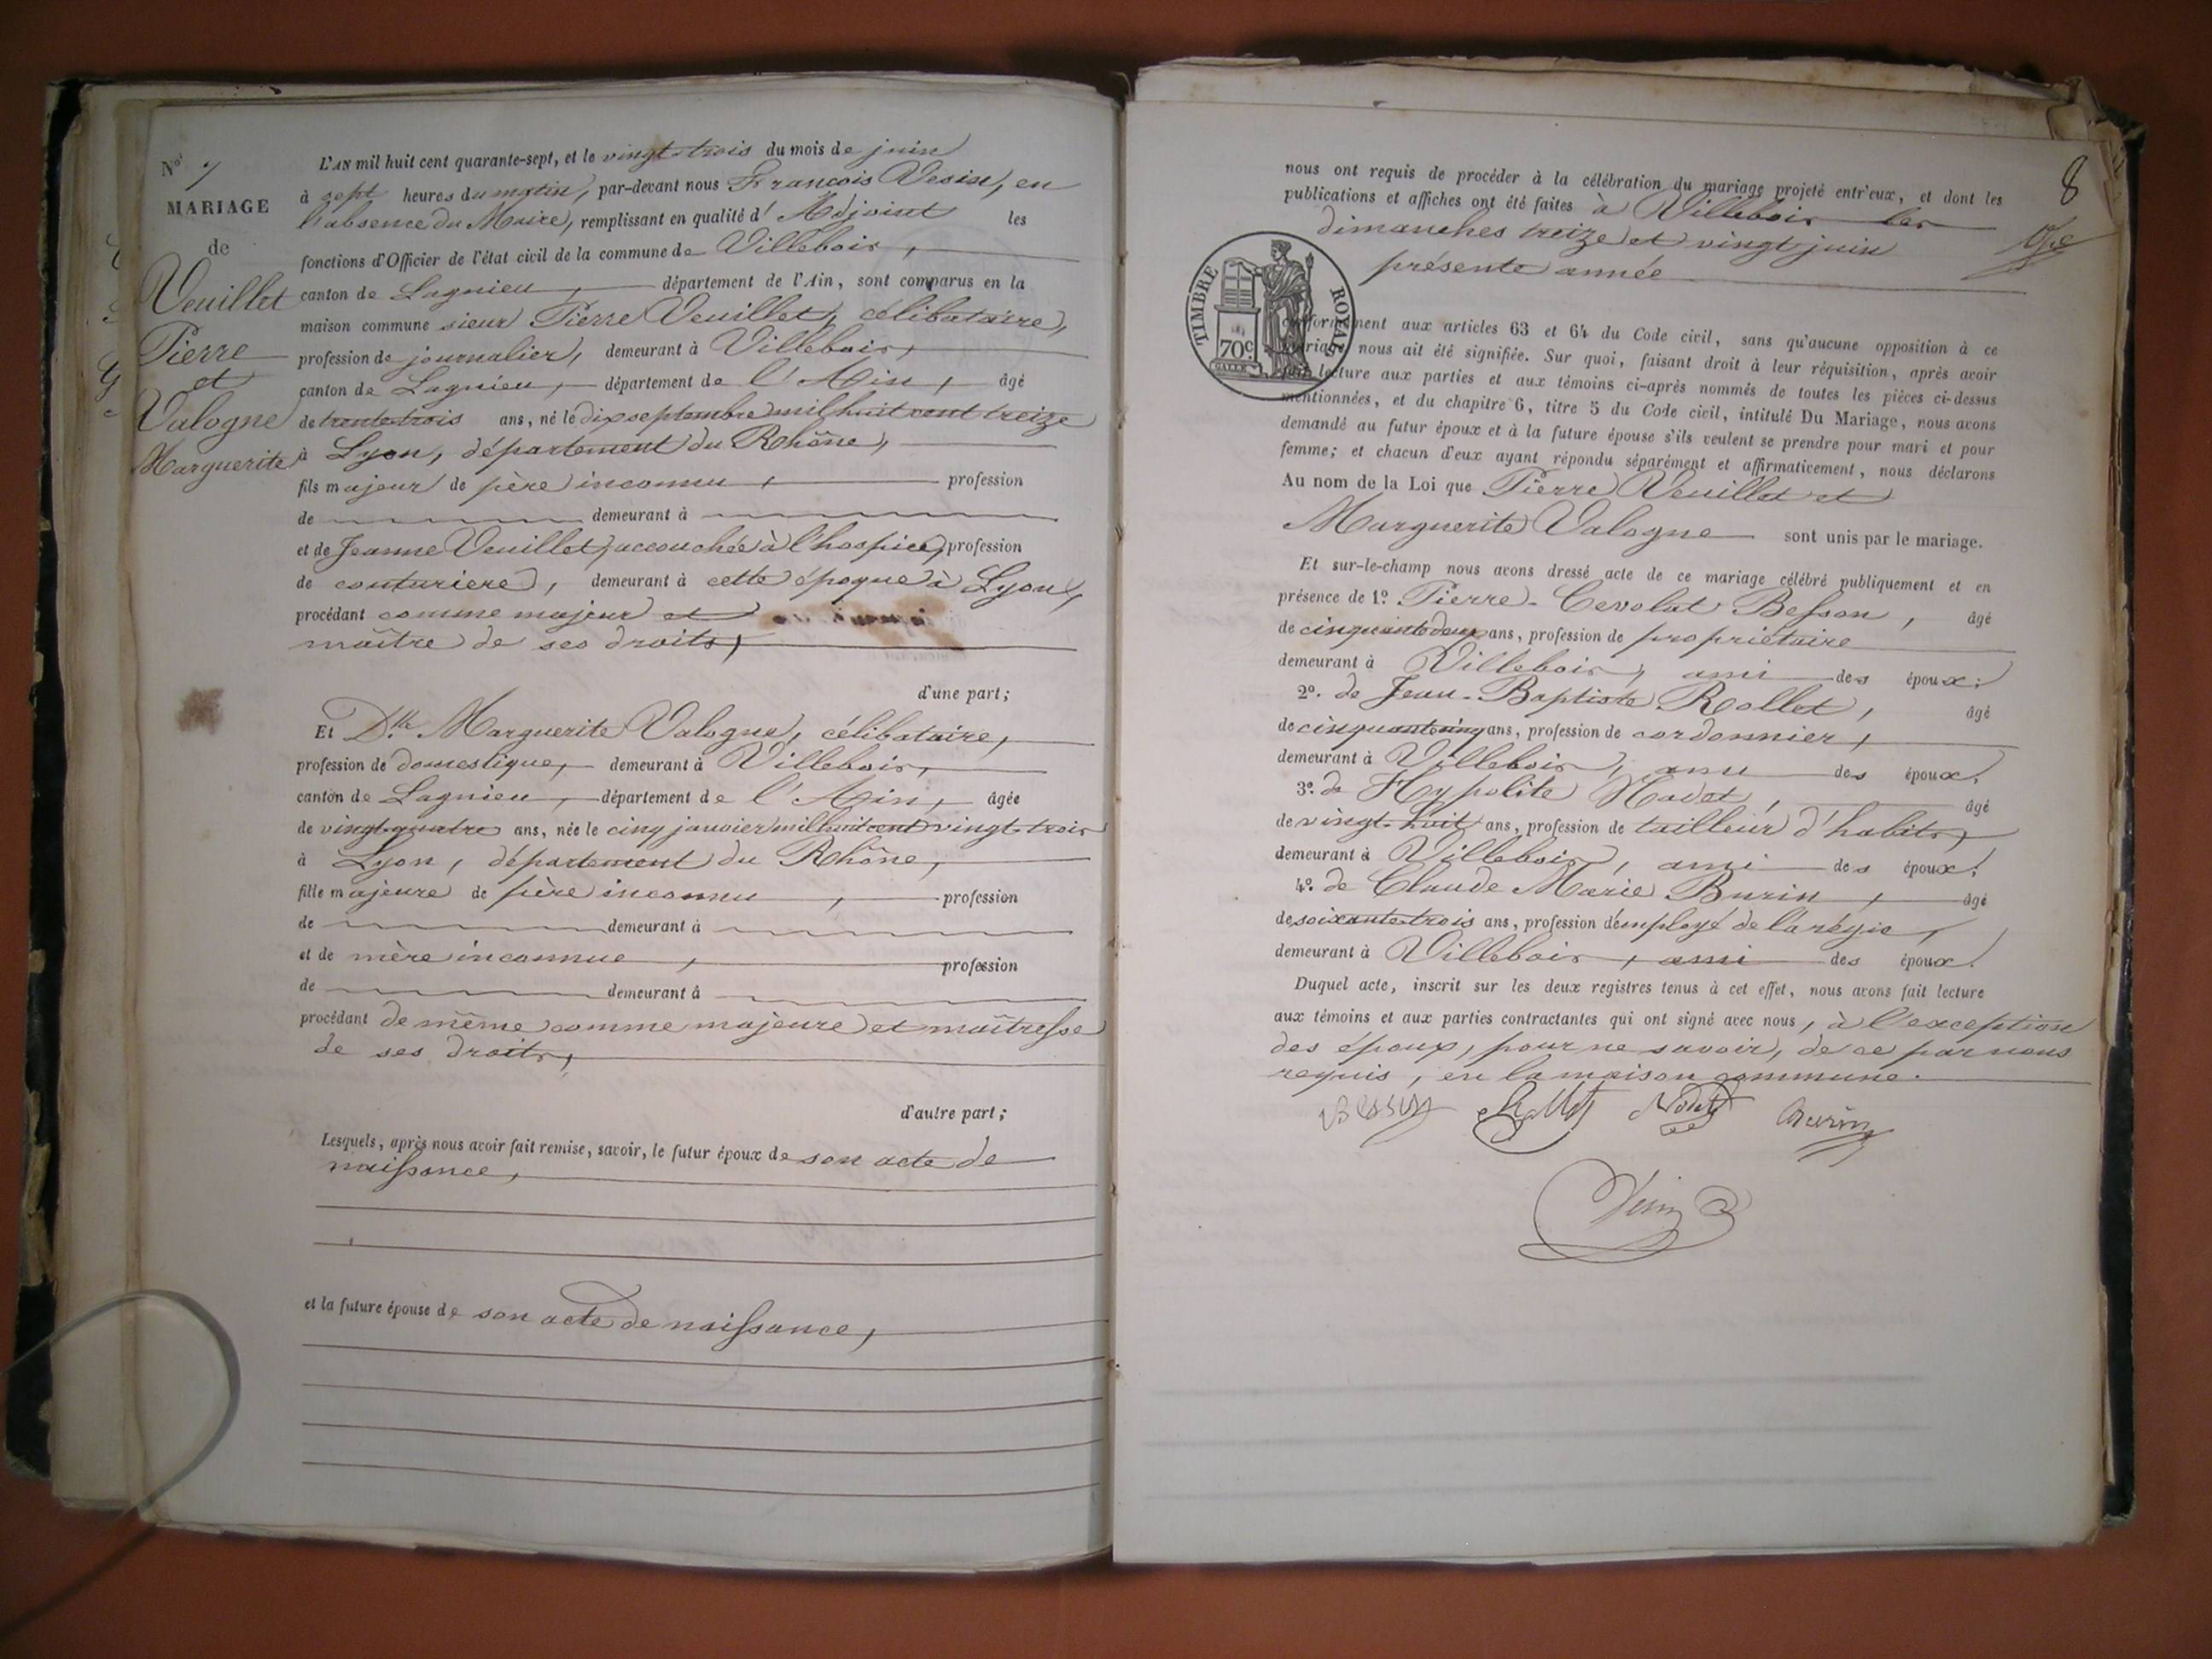 N° 7
MARIAGE
de
Veuillet
Pierre
et
Valogne
Marguerite
L'AN mil huit cent quarante-sept, et le vingt-trois du mois de juin
à sept heures du matin, par-devant nous François Vesin, en
l'absence du Maire, remplissant en qualité d'Adjoint les
fonctions d'Officier de l'état civil de la commune de Villebois,
canton de Lagnieu, département de l'Ain, sont comparus en la
maison commune sieur Pierre Veuillet, célibataire,
profession de journalier, demeurant à Villebois,
canton de Lagnieu, département de l'Ain, âgé
de trente-trois ans, né le dix septembre mil huit cent treize
à Lyon, département du Rhône,
fils majeur de père inconnu, profession
de demeurant à
et de Jeanne Veuillet, accouchée à l'hospice, profession
de couturiere, demeurant à cette époque à Lyon,
procédant comme majeur et
maître de ses droits,
d'une part;
Et Dlle Marguerite Valogne, célibataire,
profession de domestique, demeurant à Villebois,
canton de Lagnieu, département de l'Ain, âgée
de vingt-quatre ans, née le cinq janvier mil huit cent vingt-trois
à Lyon, département du Rhône,
fille majeure de père inconnu, profession
de demeurant à
et de mère inconnue, profession
de demeurant à
procédant de même comme majeure et maîtresse
de ses droits,
d'autre part;
Lesquels, après nous avoir fait remise, savoir, le futur époux de son acte de
naissance,
et la future épouse de son acte de naissance,
8
nous ont requis de procéder à la célébration du mariage projeté entr'eux, et dont les
publications et affiches ont été faites à Villebois les
dimanches treize et vingt juin
présente année
TIMBRE ROYAL
70c
conformément aux articles 63 et 64 du Code civil, sans qu'aucune opposition à ce
mariage nous ait été signifiée. Sur quoi, faisant droit à leur réquisition, après avoir
fait lecture aux parties et aux témoins ci-après nommés de toutes les pièces ci-dessus
mentionnées, et du chapitre 6, titre 5 du Code civil, intitulé Du Mariage, nous avons
demandé au futur époux et à la future épouse s'ils veulent se prendre pour mari et pour
femme; et chacun d'eux ayant répondu séparément et affirmativement, nous déclarons
Au nom de la Loi que Pierre Veuillet et
Marguerite Valogne sont unis par le mariage.
Et sur-le-champ nous avons dressé acte de ce mariage célébré publiquement et en
présence de 1° Pierre-Cevolat Besson, âgé
de cinquante-deux ans, profession de propriétaire
demeurant à Villebois, ami des époux;
2°. de Jean-Baptiste Rollet, âgé
de cinquante-cinq ans, profession de cordonnier,
demeurant à Villebois, ami des époux;
3°. de Hypolite Nodet, âgé
de vingt-huit ans, profession de tailleur d'habits,
demeurant à Villebois, ami des époux;
4°. de Claude Marie Burin, âgé
de soixante-trois ans, profession d'employé de la régie,
demeurant à Villebois, ami des époux.
Duquel acte, inscrit sur les deux registres tenus à cet effet, nous avons fait lecture
aux témoins et aux parties contractantes qui ont signé avec nous, à l'exception
des époux, pour ne savoir, de ce par nous
requis, en la maison commune.
Besson Rollet Nodet Burin
Vesin